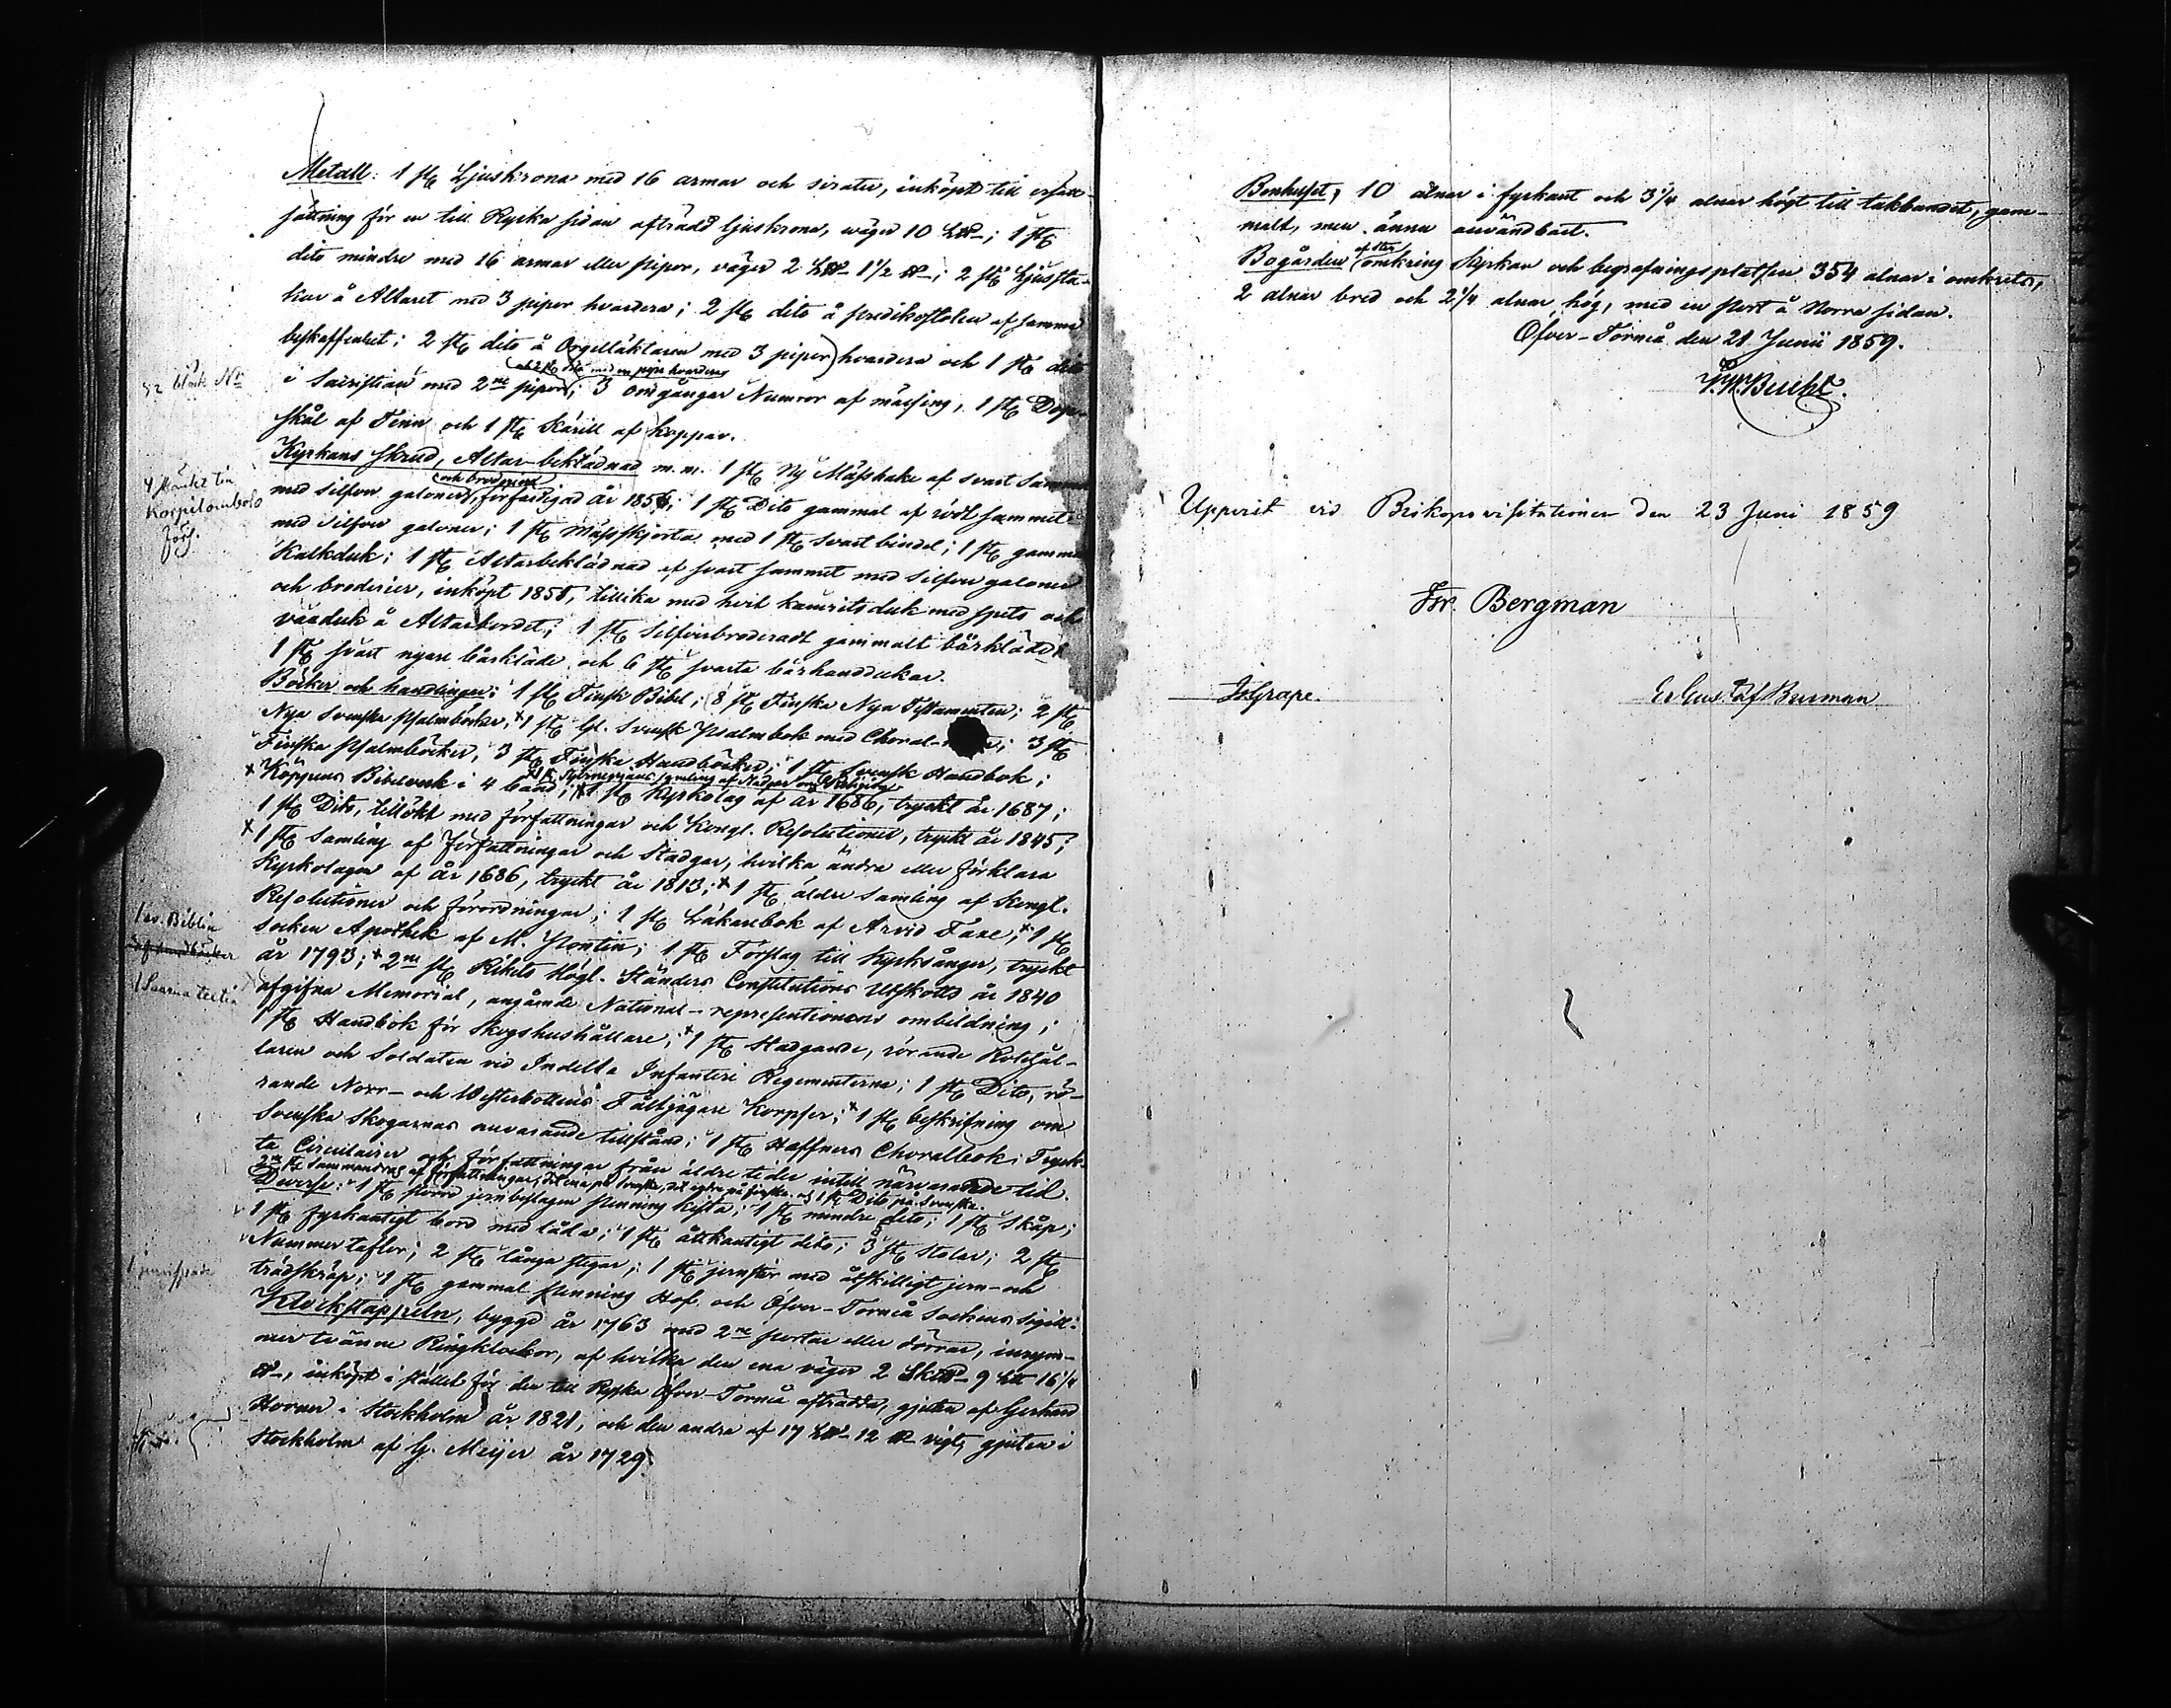 Metall: 1 st. Ljuskrona med 16 armar och sirater, inköpt till ersätt-
sättning för en till Ryska sidan afträdd ljuskrona, väger 10 L℔; 1 st.
dito mindre med 16 armar eller pipor, väger 2 L℔ 1½ ℔; 2 st. Ljussta-
kar å Altaret med 3 pipor hvardera; 2 st. dito å predikstolen af samma
beskaffenhet; 2 st. dito å Orgelläktaren med 3 pipor hvardera och 1 st. dito
och 2 st. dito med en pipa hvardera
i Sacristian med 2ne pipor; 3 omgångar Numror af mässing, 1 st. Dop-
skål af Tenn och 1 st. Kärill af koppar.
Kyrkans skrud, Altar-beklädnad m.m. 1 st. Ny Mässhake af svart Sammet
och broderier
med silfver galoner, förfärdigad år 1856; 1 st. Dito gammal af rödt sammet
med silfver galoner; 1 st. Mässskjorta med 1 st. svart bindel; 1 st. gammal
Kalkduk; 1 st. Altarbeklädnad af svart sammet med silfver galoner
och broderier, inköpt 1858, tillika med hvit kamritsduk med spets och
vaxduk å Altarbordet; 1 st. Silfverbroderadt gammalt bårkläde;
1 st. svart nyare bårkläde och 6 st. svarta bårhanddukar.
Böcker och handlingar: 1 st. Finsk Bibel; 8 st. Finska Nya Testamenten; 2 st.
Nya Svenska psalmböcker, 1 st. Gl. Svensk Psalmbok med Choral-; 3 st.
Finska psalmböcker, 3 st. Finska Handböcker; 1 st. Svensk Handbok;
samling af Stadgar
Köppens Bibelverk i 4 band; 1 st. Kyrkolag af år 1686, tryckt år 1687;
1 st. Dito, tillökt med författningar och Kongl. Resolutioner, tryckt år 1845;
1 st. Samling af Författningar och Stadgar, hvilka ändra eller förklara
Kyrkolagen af år 1686, tryckt år 1813; 1 st. äldre samling af Kongl.
Resolutioner och förordningar; 1 st. Läkarebok af Arvid Faxe; 1 st.
Socken Apothek af M. Pontin; 1 st. Förslag till Kyrksånger, tryckt
år 1793; 2ne st. Rikets Högl. Ständers Constitutions Utskotts år 1840
afgifna Memorial, angående National-representationens ombildning;
1 st. Handbok för skogshushållare; 1 st. Stadgande, rörande Rotehål-
laren och Soldaten vid Indelta Infanteri Regementerna; 1 st. Dito, rö-
rande Norr- och Westerbottens Fältjägare Korpser; 1 st. beskrifning om
Svenska skogarnas nuvarande tillstånd; 1 st. Haffners Choralbok; Tryck-
ta Circulairer och författningar från äldre tider intill närvarande tid.
2ne st. Sammandrag af författningar, det ena på svenska, det andra på finska och 1 st. Dito på Svenska.
Diverse: 1 st. större jernbeslagen penning kista; 1 st. mindre dito; 1 st. skåp;
1 st. fyrkantigt bord med låda; 1 st. åttkantigt dito; 3 st. stolar; 2 st.
Nummertaflor; 2 st. långa stegar; 1 st. jernstör med åtskilligt jern- och
trädskräp; 1 st. gammal penning Hof och Öfver-Torneå Sockens sigill.
Klockstappeln, byggd år 1763 med 2ne portar eller dörrar, inrym-
mer tvänne Ringklockor, af hvilka den ena väger 2 Sk℔ 9 L℔ 16¼
℔, inköpt i stället för den till Ryska Öfver-Torneå afträdda, gjuten af Gerhard
Horner i Stockholm år 1821, och den andra af 17 L℔ 12 ℔ vigt, gjuten i
Stockholm af G. Meyer år 1729.
Korpilombolo
förs.
1 sv. Biblia
1 jernspade
Bönhuset, 10 alnar i fyrkant och 3¼ alnar högt till takbandet, gam-
malt, men ännu användbart.
Bogården omkring Kyrkan och begrafningsplatsen 354 alnar i omkrets,
2 alnar bred och 2¼ alnar hög, med en port å Norra sidan.
Öfver-Torneå den 21 Junii 1859.
Bucht.
Uppvist vid Biskopsvisitationen den 23 Juni 1859
Isr. Bergman
Is Grape.
Er. Gust. af Burman